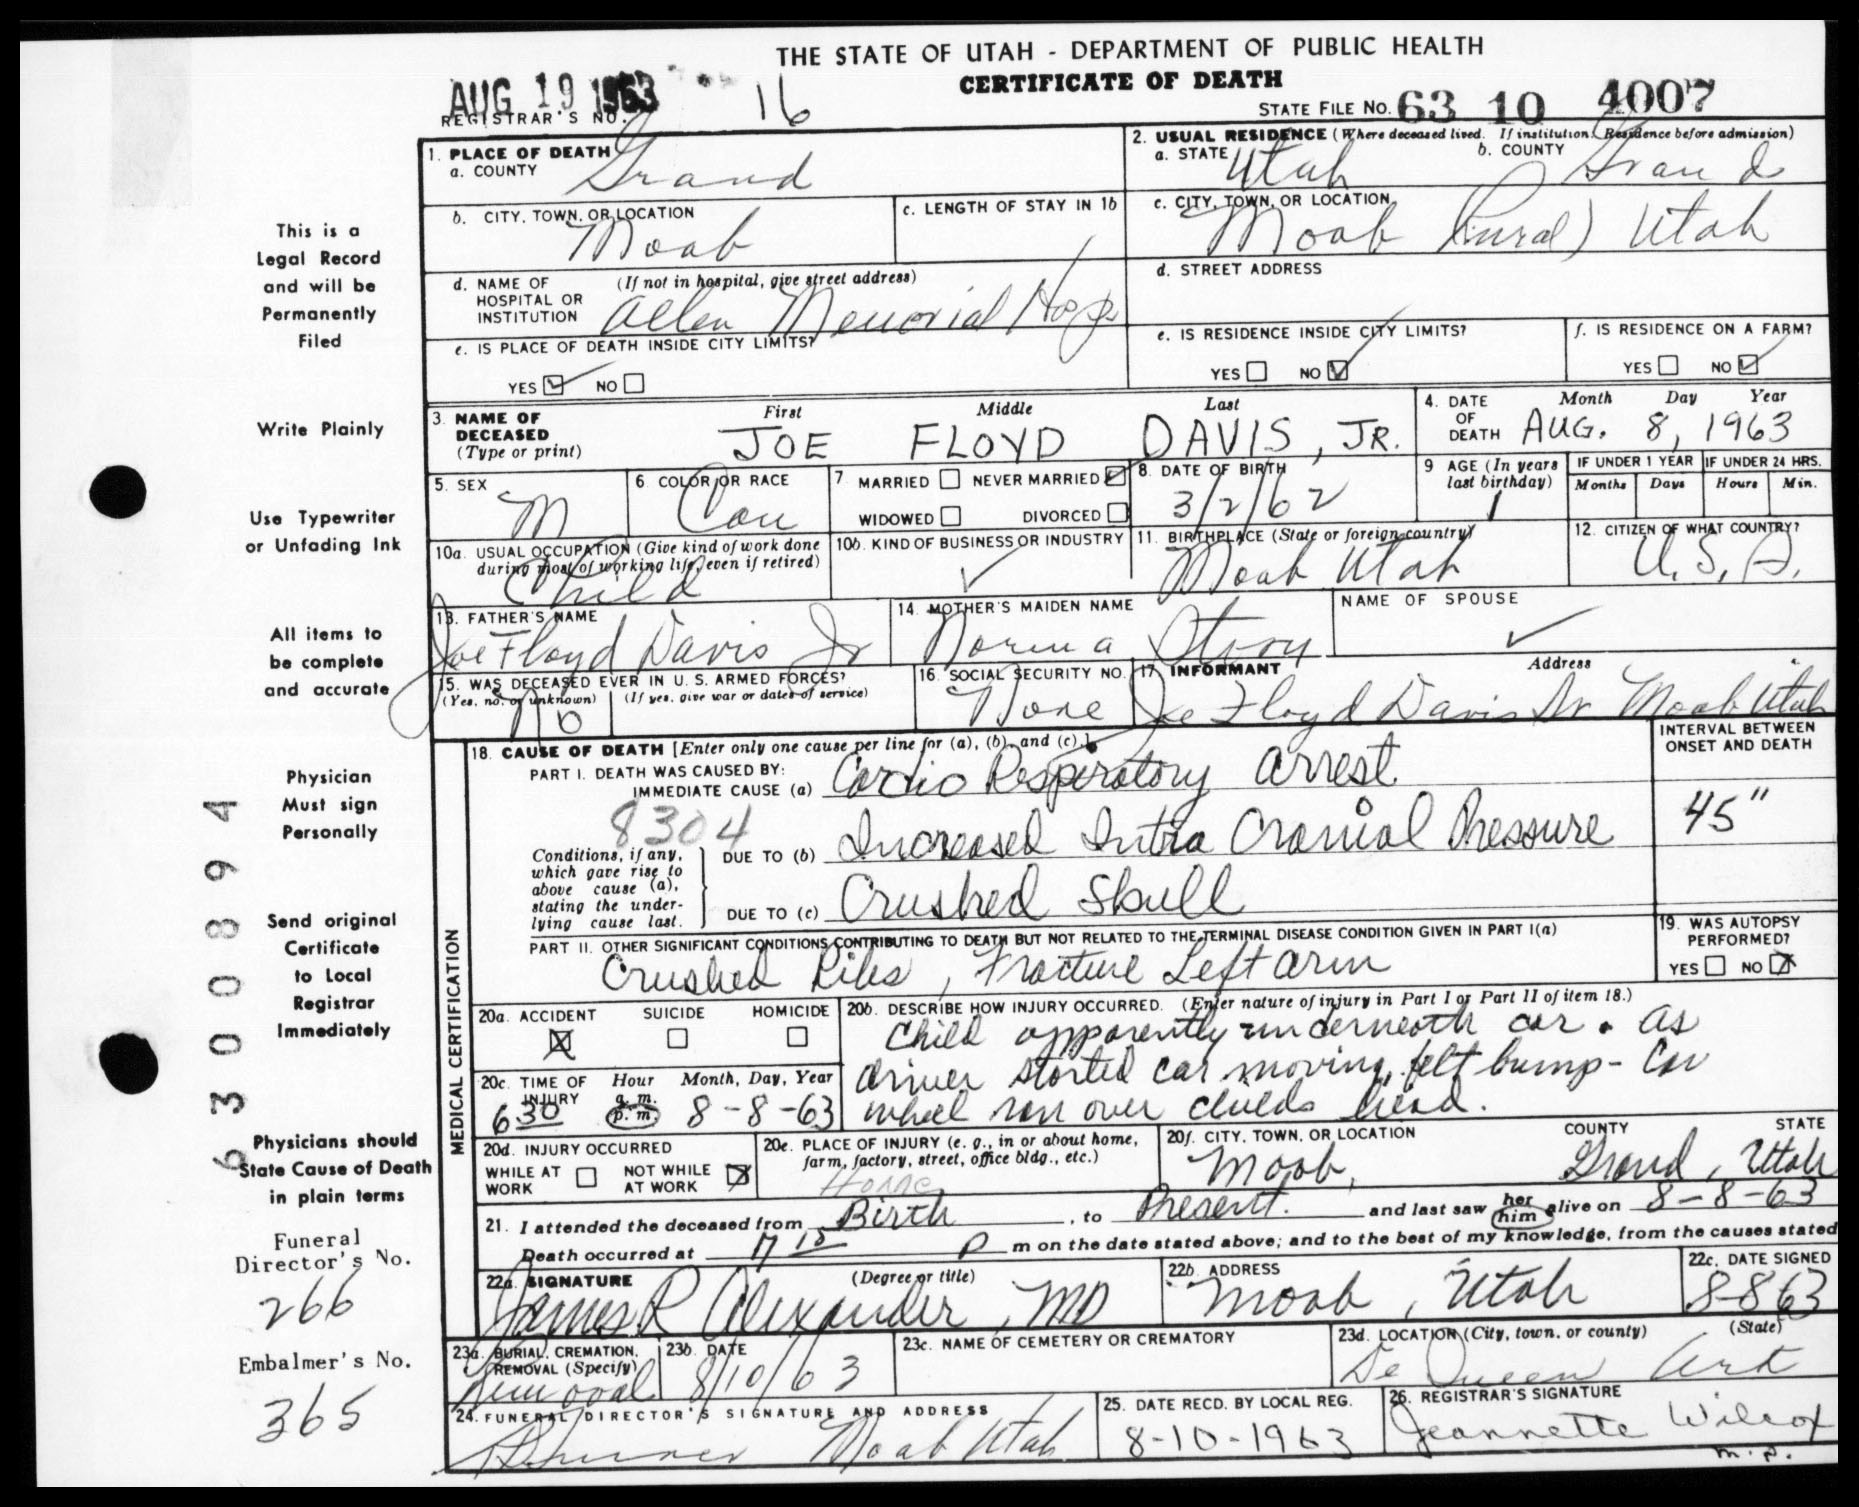 THE STATE OF UTAH - DEPARTMENT OF PUBLIC HEALTH
CERTIFICATE OF DEATH
AUG 19 1963
REGISTRAR'S NO. 16
STATE FILE NO. 63 10 4007
1. PLACE OF DEATH
a. COUNTY Grand
2. USUAL RESIDENCE (Where deceased lived. If institution: Residence before admission)
a. STATE Utah b. COUNTY Grand
b. CITY, TOWN, OR LOCATION Moab
c. LENGTH OF STAY IN 1b
c. CITY, TOWN, OR LOCATION Moab (Rural) Utah
d. NAME OF HOSPITAL OR INSTITUTION (If not in hospital, give street address) Allen Memorial Hosp
d. STREET ADDRESS
e. IS PLACE OF DEATH INSIDE CITY LIMITS?
YES NO
e. IS RESIDENCE INSIDE CITY LIMITS?
YES NO
f. IS RESIDENCE ON A FARM?
YES NO
3. NAME OF DECEASED (Type or print)
First Middle Last
JOE FLOYD DAVIS, JR.
4. DATE OF DEATH
Month Day Year
AUG. 8, 1963
5. SEX M
6. COLOR OR RACE Cau
7. MARRIED NEVER MARRIED
WIDOWED DIVORCED
8. DATE OF BIRTH 3/2/62
9 AGE (In years last birthday) 1
IF UNDER 1 YEAR
Months Days
IF UNDER 24 HRS.
Hours Min.
10a. USUAL OCCUPATION (Give kind of work done during most of working life, even if retired) Child
10b. KIND OF BUSINESS OR INDUSTRY
11. BIRTHPLACE (State or foreign country) Moab Utah
12. CITIZEN OF WHAT COUNTRY? U.S.A.
13. FATHER'S NAME Joe Floyd Davis Sr
14. MOTHER'S MAIDEN NAME Norma
NAME OF SPOUSE
15. WAS DECEASED EVER IN U.S. ARMED FORCES?
(Yes, no, or unknown) (If yes, give war or dates of service)
No
16. SOCIAL SECURITY NO. None
17. INFORMANT Address
Joe Floyd Davis Sr Moab Utah
18. CAUSE OF DEATH [Enter only one cause per line for (a), (b), and (c).]
INTERVAL BETWEEN ONSET AND DEATH
PART I. DEATH WAS CAUSED BY:
IMMEDIATE CAUSE (a) Cardio Respiratory Arrest
8304
45"
Conditions, if any, which gave rise to above cause (a), stating the underlying cause last.
DUE TO (b) Increased Intra Cranial Pressure
DUE TO (c) Crushed Skull
PART II. OTHER SIGNIFICANT CONDITIONS CONTRIBUTING TO DEATH BUT NOT RELATED TO THE TERMINAL DISEASE CONDITION GIVEN IN PART I(a)
Crushed Ribs, Fracture Left arm
19. WAS AUTOPSY PERFORMED?
YES NO
MEDICAL CERTIFICATION
20a. ACCIDENT SUICIDE HOMICIDE
20b. DESCRIBE HOW INJURY OCCURRED. (Enter nature of injury in Part I or Part II of item 18.)
Child apparently underneath car. As
driver started car moving, felt bump - Car
wheel ran over childs head.
20c. TIME OF INJURY Hour Month, Day, Year
630 a.m. p.m. 8-8-63
20d. INJURY OCCURRED
WHILE AT WORK NOT WHILE AT WORK
20e. PLACE OF INJURY (e. g., in or about home, farm, factory, street, office bldg., etc.)
Home
20f. CITY, TOWN, OR LOCATION COUNTY STATE
Moab, Grand, Utah
21. I attended the deceased from Birth, to Present. and last saw her him alive on 8-8-63
Death occurred at 715 P m on the date stated above; and to the best of my knowledge, from the causes stated
22a. SIGNATURE (Degree or title)
James R Alexander, MD
22b. ADDRESS
Moab, Utah
22c. DATE SIGNED
8-8-63
23a. BURIAL, CREMATION, REMOVAL (Specify) Removal
23b. DATE 8/10/63
23c. NAME OF CEMETERY OR CREMATORY
23d. LOCATION (City, town, or county) (State)
De Queen Ark
24. FUNERAL DIRECTOR'S SIGNATURE AND ADDRESS
Moab Utah
25. DATE RECD. BY LOCAL REG.
8-10-1963
26. REGISTRAR'S SIGNATURE
Jeannette Wilcox
m.p.
This is a
Legal Record
and will be
Permanently
Filed
Write Plainly
Use Typewriter
or Unfading Ink
All items to
be complete
and accurate
Physician
Must sign
Personally
Send original
Certificate
to Local
Registrar
Immediately
Physicians should
State Cause of Death
in plain terms
Funeral
Director's No.
266
Embalmer's No.
365
6300894